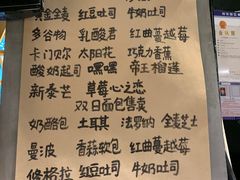 黄金全麦 红豆吐司 牛奶吐司
多谷物 乳酸君 红曲蔓越莓
卡门贝尔 太阳花 巧克力香蕉
酸奶起司 嘿嘿 帝王榴莲
新泰芒 草莓心之恋
双日面包售卖
奶酪包 土耳其 法罗纳 全麦芝士
曼波 香蒜软包 红曲蔓越莓
修格拉 红豆吐司 牛奶吐司